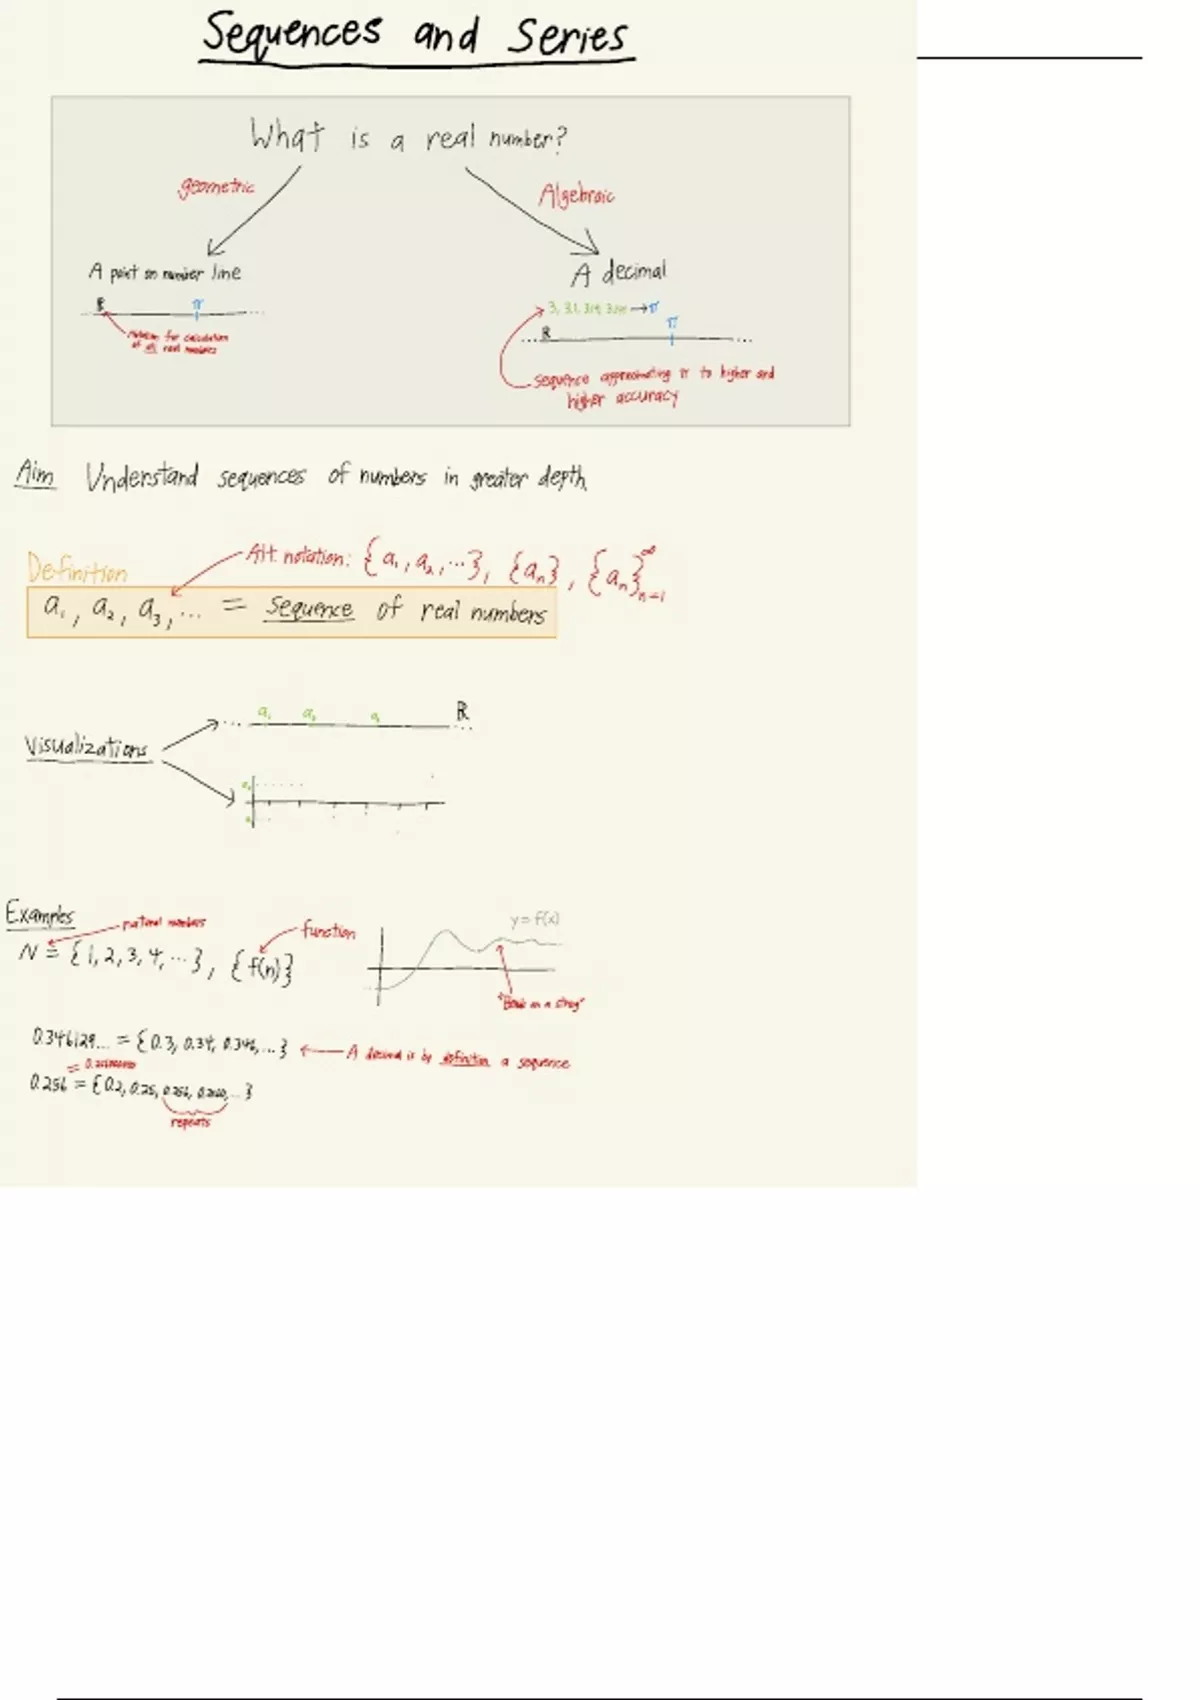 Sequences and Series
What is a real number?
geometric
Algebraic
A point on number line
A decimal
R π
3, 3.1, 3.14, 3.141 → π
R π
notation for calculation
of all real numbers
sequence approximating π to higher and
higher accuracy
Aim Understand sequences of numbers in greater depth.
Definition
Alt. notation: {a₁, a₂, ...}, {aₙ}, {aₙ}ₙ₌₁^∞
a₁, a₂, a₃, ... = sequence of real numbers
Visualizations
... a₁ a₂ a₃ R ...
Examples
natural numbers
function
y = f(x)
N = {1, 2, 3, 4, ...}, {f(n)}
"Beads on a string"
0.346129... = {0.3, 0.34, 0.346, ...} ← A decimal is by definition a sequence
0.256 = {0.2, 0.25, 0.256, 0.2560, ...}
repeats